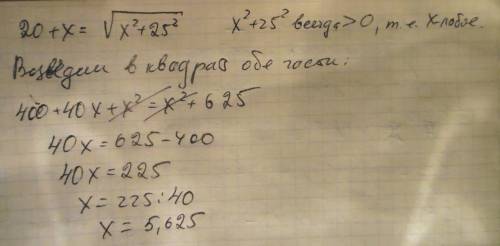 20 + x = √(x² + 25²)   x² + 25² всегда > 0, т.е. x любое.
Возведём в квадрат обе части:
400 + 40x + x² = x² + 625
40x = 625 - 400
40x = 225
x = 225 : 40
x = 5,625